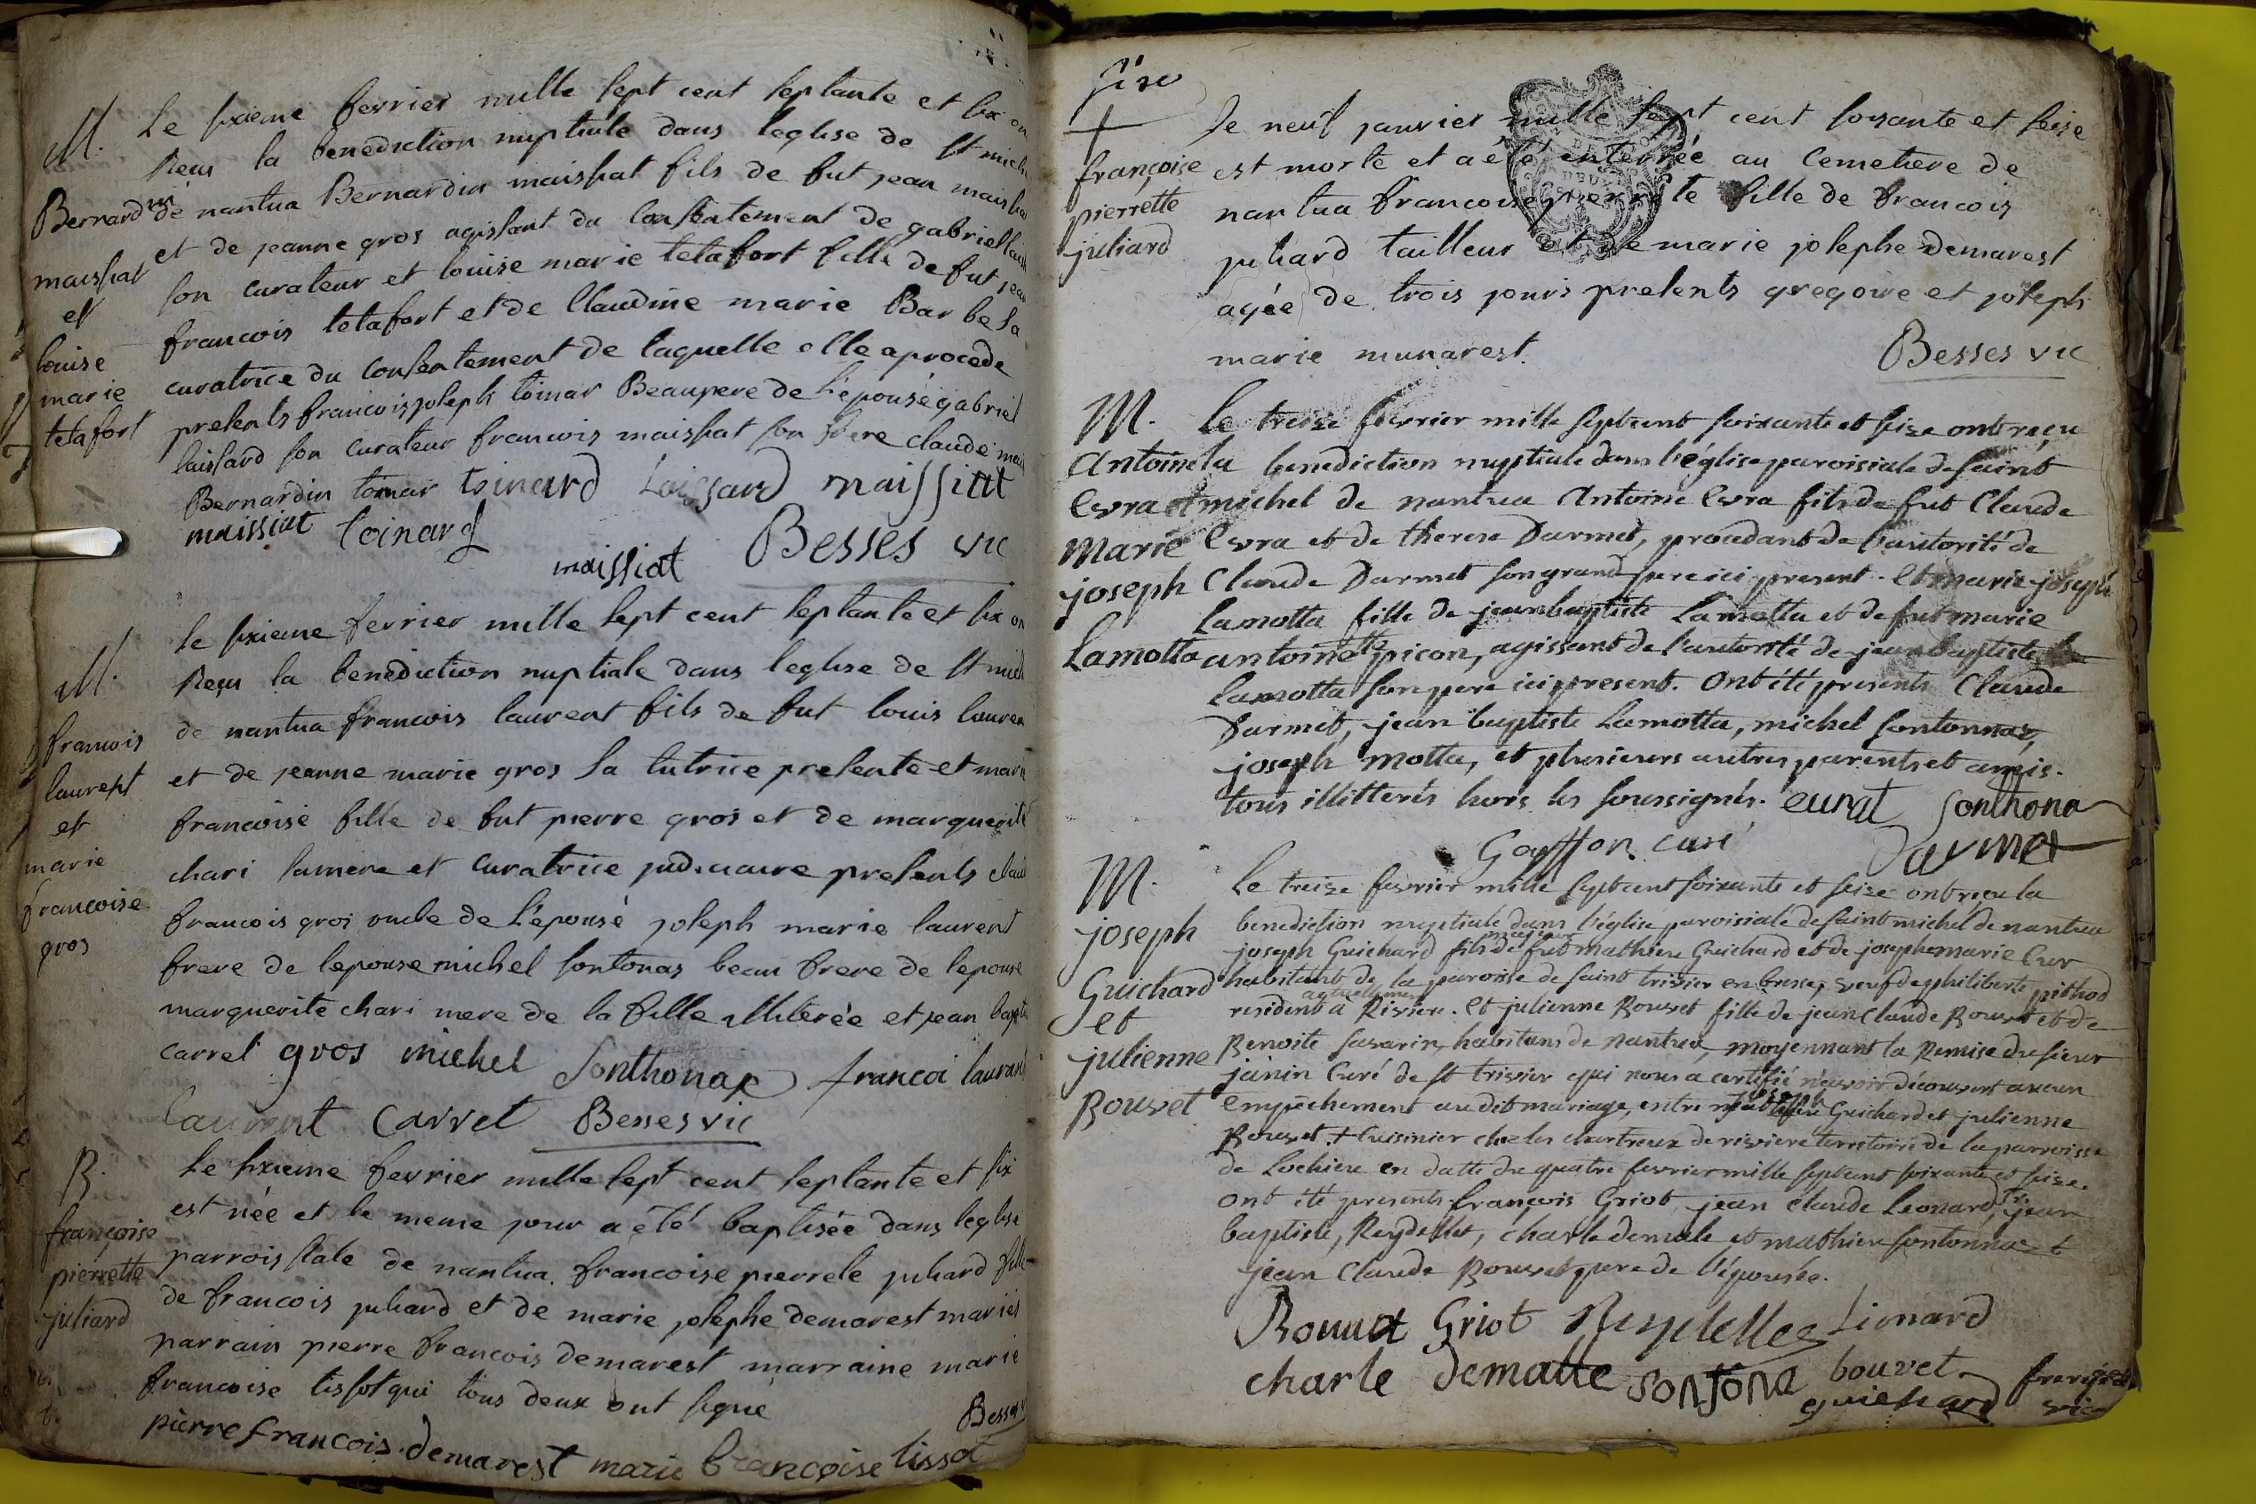 M.
Bernardin
maissiat
et
louise
marie
tetafort
Le sixieme fevrier mille sept cent septante et six on
Reçu la benediction nuptiale dans leglise de St mich
de nantua Bernardin maissiat fils de fut jean maissia
et de jeanne gros agissant du consentement de gabriel laiss
son curateur et louise marie tetafort fille de fut jean
francois tetafort et de Claudine marie Barbe sa
curatrice du consentement de laquelle elle a procede
presents francois joseph toinar Beaupere de l'epousé gabriel
laissard son curateur francois maissiat son frere claude mais
Bernardin toinar toinard Laissard maissiat
maissiat toinard
maissiat Besses vic
M.
francois
laurent
et
marie
francoise
gros
le sixieme fevrier mille sept cent septante et six on
Reçu la benediction nuptiale dans leglise de St mich
de nantua francois laurent fils de fut louis lauren
et de jeanne marie gros sa tutrice presente et marie
francoise fille de fut pierre gros et de marguerite
chari sa mere et curatrice judiciaire presents clau
francois gros oncle de l'epousé joseph marie laurent
frere de lepouse michel sontonas beau frere de lepouse
marguerite chari mere de la fille illiterée et jean bapti
carrel gros michel Sonthonax francoi lauran
laurent carret Besses vic
B.
françoise
pierrette
juliard
Le sixieme fevrier mille sept cent septante et six
est née et le meme jour a été baptisée dans leglise
parroissiale de nantua francoise pierrete juliard fille
de francois juliard et de marie josephe demarest mariés
parrain pierre francois demarest marraine marie
francoise tissot qui tous deux ont signé
Besses v
pierre francois demarest marie françoise tissot
sise
françoise
pierrette
juliard
Le neuf janvier mille sept cent soixante et seise
est morte et a été enterrée au Cemetiere de
nantua francoise pierrete fille de francois
juliard tailleur et de marie josephe demarest
agée de trois jours presents gregoire et joseph
marie munarest. Besses vic
M.
Antoine
Evra et
Marie
joseph
Lamotta
Le treize fevrier mille septcent soixante et seize ont reçu
la benediction nuptiale dans l'église paroisiale de saint
michel de nantua Antoine Evra fils de fut Claude
Evra et de therese Darmet, procedant de l'autorité de
Claude Darmet son grand pere ici present. Et marie joseph
Lamotta fille de jean baptiste Lamotta et de fut marie
antoinette picon, agissant de l'autorité de jean baptiste
Lamotta son pere ici present. Ont été presents Claude
Darmet, jean baptiste Lamotta, michel sontonnaz,
joseph motta, et plusieurs autres parents et amis.
tous illitterés hors les soussignés. eurat Sonthona
Goyffon curé Darmet
M.
joseph
Guichard
et
julienne
Bouvet
Le treize fevrier mille septcent soixante et seize ont reçu la
benediction nuptiale dans l'église paroisiale de saint michel de nantua
joseph Guichard fils majeur de fut Mathieu Guichard et de josephe marie Cur
habitant de la paroisse de saint trivier en bresse, veuf de philiberte pithod
résident actuellement à Riviere. Et julienne Bouvet fille de jean Claude Bouvet et de
Benoite savarin, habitans de nantua, moyennant la Remise du sieur
janin Curé de st trivier qui nous a certifié n'avoir découvert aucun
empêchement au dit mariage, entre joseph Guichard et julienne
Bouvet. + Cuisinier chez les chartreux de riviere territoire de la parroisse
de Lochiere en datte du quatre fevrier mille septcent soixante et seize.
Ont été presents françois Griot, jean Claude Leonard, jean
baptiste, Reydellet, charle demate et mathieu sontonnaz et
jean Claude Bouvet pere de l'épousée.
Bouvet Griot Reydellez Lionard
charle dematte sonsona bouvet
guichard